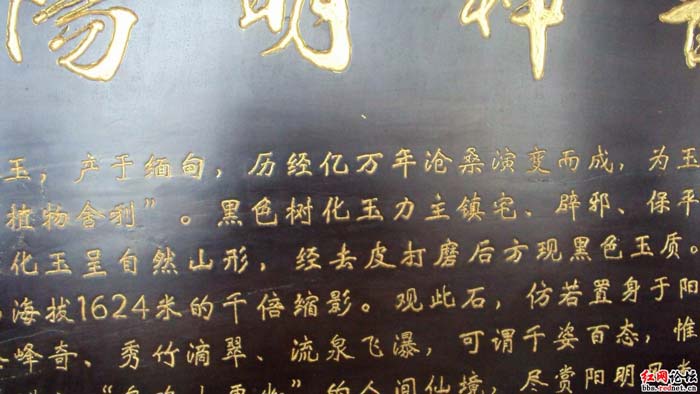 陽明神
玉，产于缅甸，历经亿万年沧桑演变而成，为玉
植物舍利”。黑色树化玉力主镇宅、辟邪、保平
化玉呈自然山形，经去皮打磨后方现黑色玉质。
海拔1624米的千倍缩影。观此石，仿若置身于阳
峰奇、秀竹滴翠、流泉飞瀑，可谓千姿百态，惟
的人间仙境，尽赏阳明
红网论坛
bbs.rednet.cn